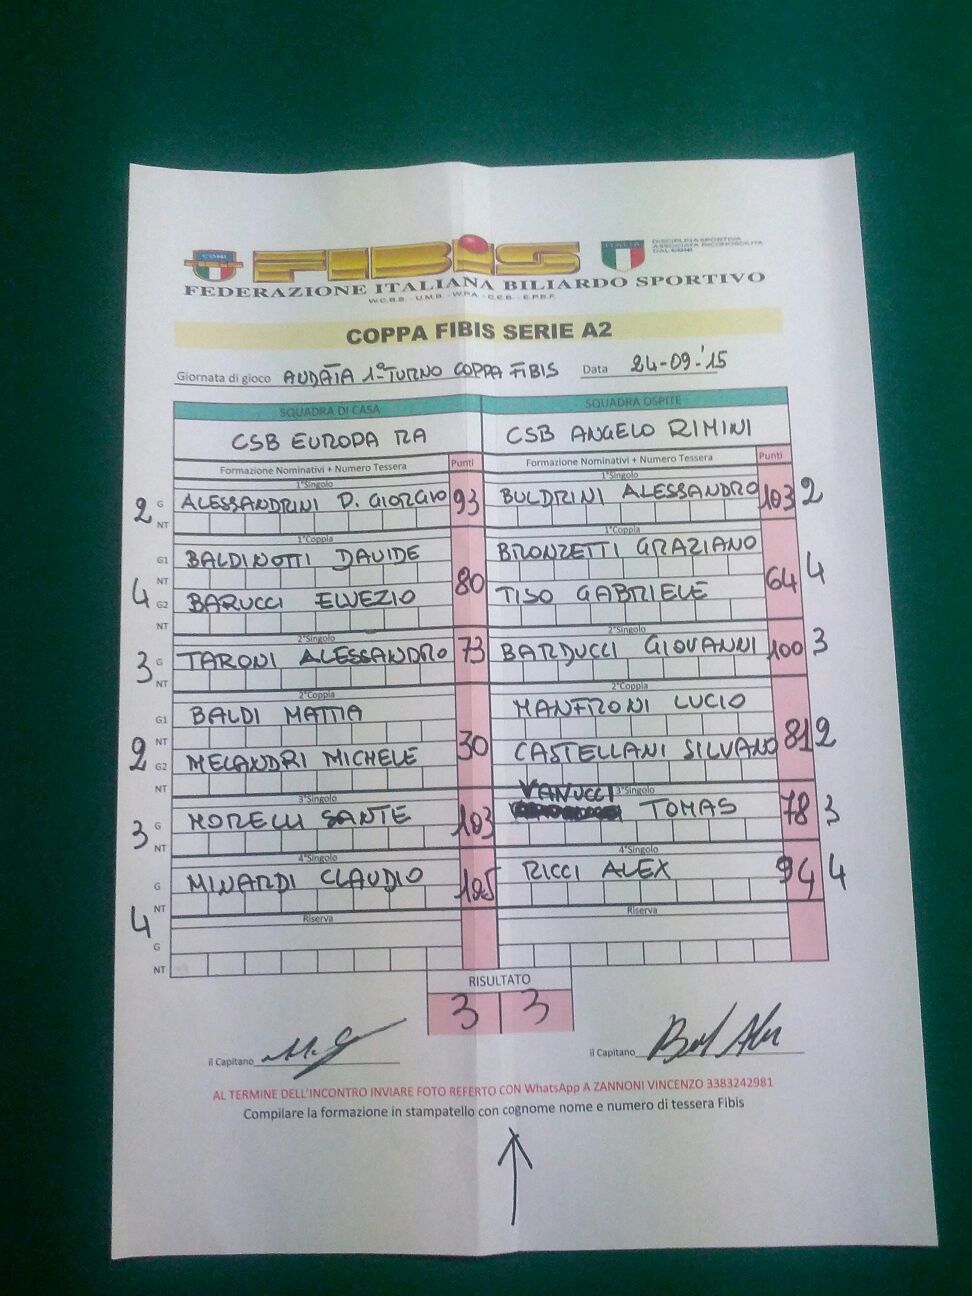 CONI
FIBIS
ITALIA
DISCIPLINA SPORTIVA
ASSOCIATA RICONOSCIUTA
DAL CONI
FEDERAZIONE ITALIANA BILIARDO SPORTIVO
W.C.B.S. - U.M.B. - W.P.A. - C.E.B. - E.P.B.F.
COPPA FIBIS SERIE A2
Giornata di gioco ANDATA 1° TURNO COPPA FIBIS Data 24-09-'15
SQUADRA DI CASA SQUADRA OSPITE
CSB EUROPA RA CSB ANGELO RIMINI
Formazione Nominativi + Numero Tessera Punti Formazione Nominativi + Numero Tessera Punti
1°Singolo 1°Singolo
2 G ALESSANDRINI P. GIORGIO 93 BULDRINI ALESSANDRO 103 2
NT
1°Coppia 1°Coppia
G1 BALDINOTTI DAVIDE BRONZETTI GRAZIANO
NT
4 80 64 4
G2 BARUCCI ELVEZIO TISO GABRIELE
NT
2°Singolo 2°Singolo
3 G TARONI ALESSANDRO 73 BARDUCCI GIOVANNI 100 3
NT
2°Coppia 2°Coppia
G1 BALDI MATTIA MANFRONI LUCIO
NT
2 30 81 2
G2 MELANDRI MICHELE CASTELLANI SILVANO
NT
3°Singolo VANUCCI 3°Singolo
3 G MORELLI SANTE 103 TOMAS 78 3
NT
4°Singolo 4°Singolo
G MINARDI CLAUDIO 105 RICCI ALEX 94 4
NT
4 Riserva Riserva
G
NT
RISULTATO
3 3
il Capitano il Capitano
AL TERMINE DELL'INCONTRO INVIARE FOTO REFERTO CON WhatsApp A ZANNONI VINCENZO 3383242981
Compilare la formazione in stampatello con cognome nome e numero di tessera Fibis